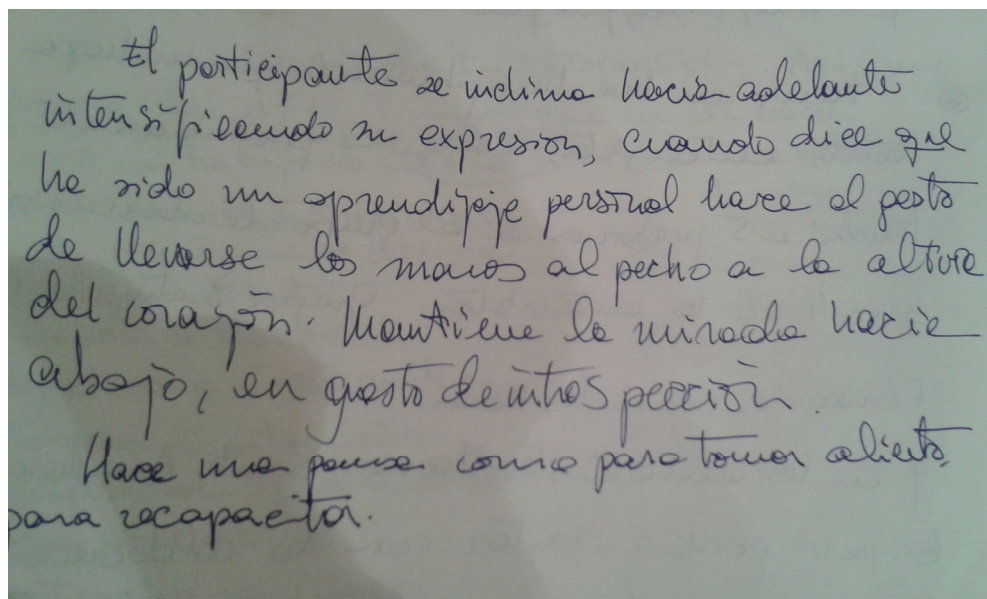 El participante se inclina hacia adelante
intensificando su expresión, cuando dice que
ha sido un aprendizaje personal hace el gesto
de llevarse las manos al pecho a la altura
del corazón. Mantiene la mirada hacia
abajo, en gesto de introspección.
Hace una pausa como para tomar aliento,
para recapacitar.